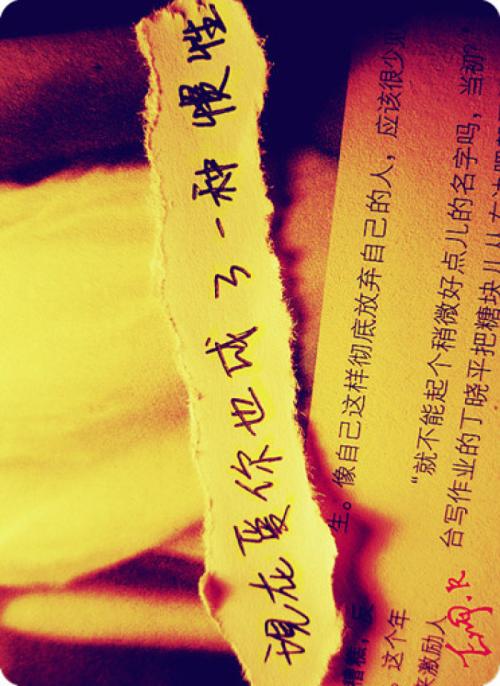 现在爱你也成了一种慢性
生。像自己这样彻底放弃自己的人，应该很少
“就不能起个稍微好点儿的名字吗，当初？”
台写作业的丁晓平把糖块儿从左边
这个年
来激励人